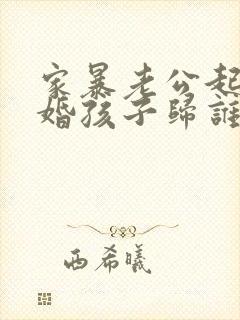 家暴老公起
婚孩子歸誰
西希曦